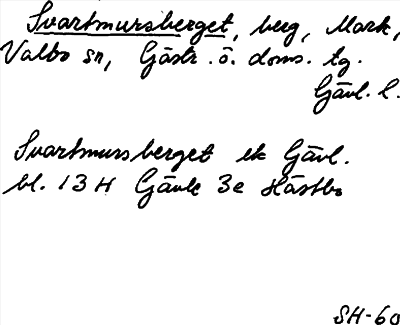 Svartmursberget, berg, Mark,
Valbo sn, Gästr. ö. doms. tg.
Gävl. l.
Svartmursberget ek Gävl.
bl. 13 H Gävle 3e Hästbo
SH-60